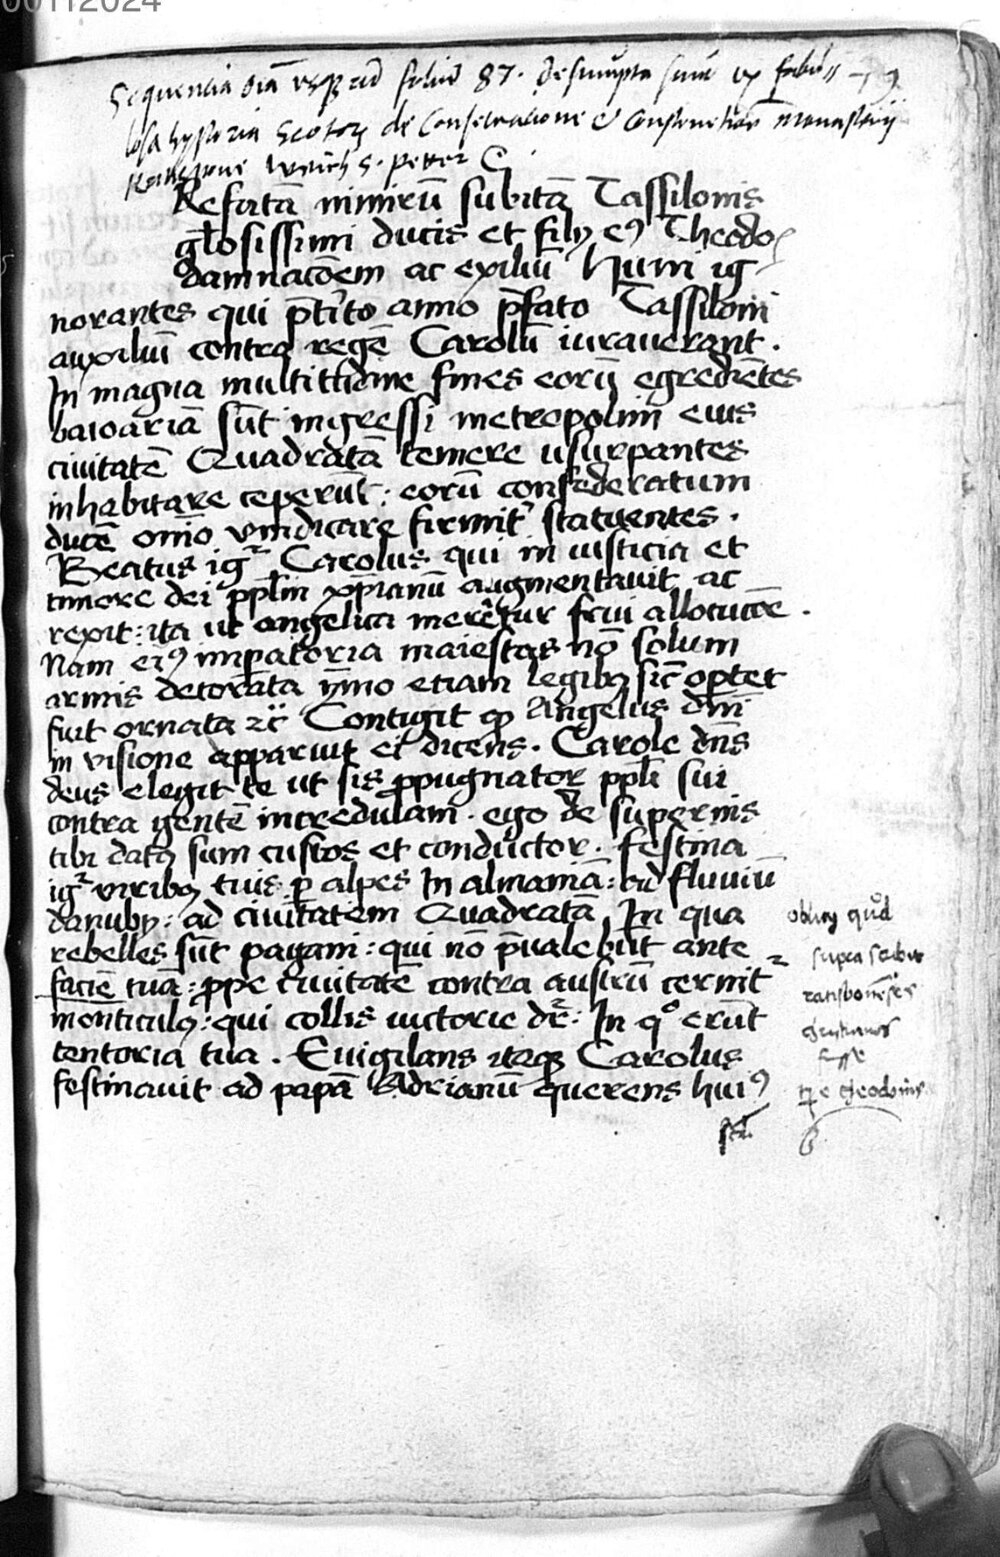 00112024
Sequentia oīa usq̧ ad foliū 87. desumpta sunt ex fabu
losa hystoria Scotoꝝ de Consecratione et constructione monasterij
Weich S. Peter
Refertā nimirū subitā Tassilonis
gl̄osissimi ducis et filij eꝰ Theodo
damnacōem ac exiliū Huni ig
norantes qui p̄tito anno p̄fato Tassiloni
auxiliū contra regē Carolū iuraverant.
In magna multitudine fines eorū egrediētes
baioariā sūt ingressi metropolim eius
civitatē Quadratā temere usurpantes
inhabitare ceperūt: eorū confederatum
ducē omīo vindicare firmit᷑ statuentes.
Beatus ig᷑ Carolus qui in iusticia et
timore dei ppl̄m xp̄ianū augmentavit ac
rexit: ita ut angelica merēt᷑ur frui allocucōe.
Nam eiꝰ impatoria maiestas nō solum
armis decorata ȳmo etiam legibꝫ sic̄ optet
fuit ornata ⁊c̄ Contigit ꝙ Angelus dn̄i
in visione apparuit ei dicens. Carole dn̄s
deus elegit te ut sis ꝓpugnator ppl̄i sui
contra gentē incredulam. ego de supernis
tibi datꝰ sum custos et conductor. festina
ig᷑ viribꝫ tuis p alpes In almaniā: ad fluviū
danubij: ad civitatem Quadratā In qua
rebelles sūt pagani: qui nō p̄valebūt ante
faciē tuā: ꝓpe civitatē contra austrū cernit᷑
monticulꝰ: qui collis victorie dr̄: In qͦ erūt
tentoria tua. Evigilans itaqꝫ Carolus
festinavit ad papā Adrianū querens huiꝰ
oblitꝰ quod
supra scribit
ratisbonēses
christianos
fuisse
Theodonis